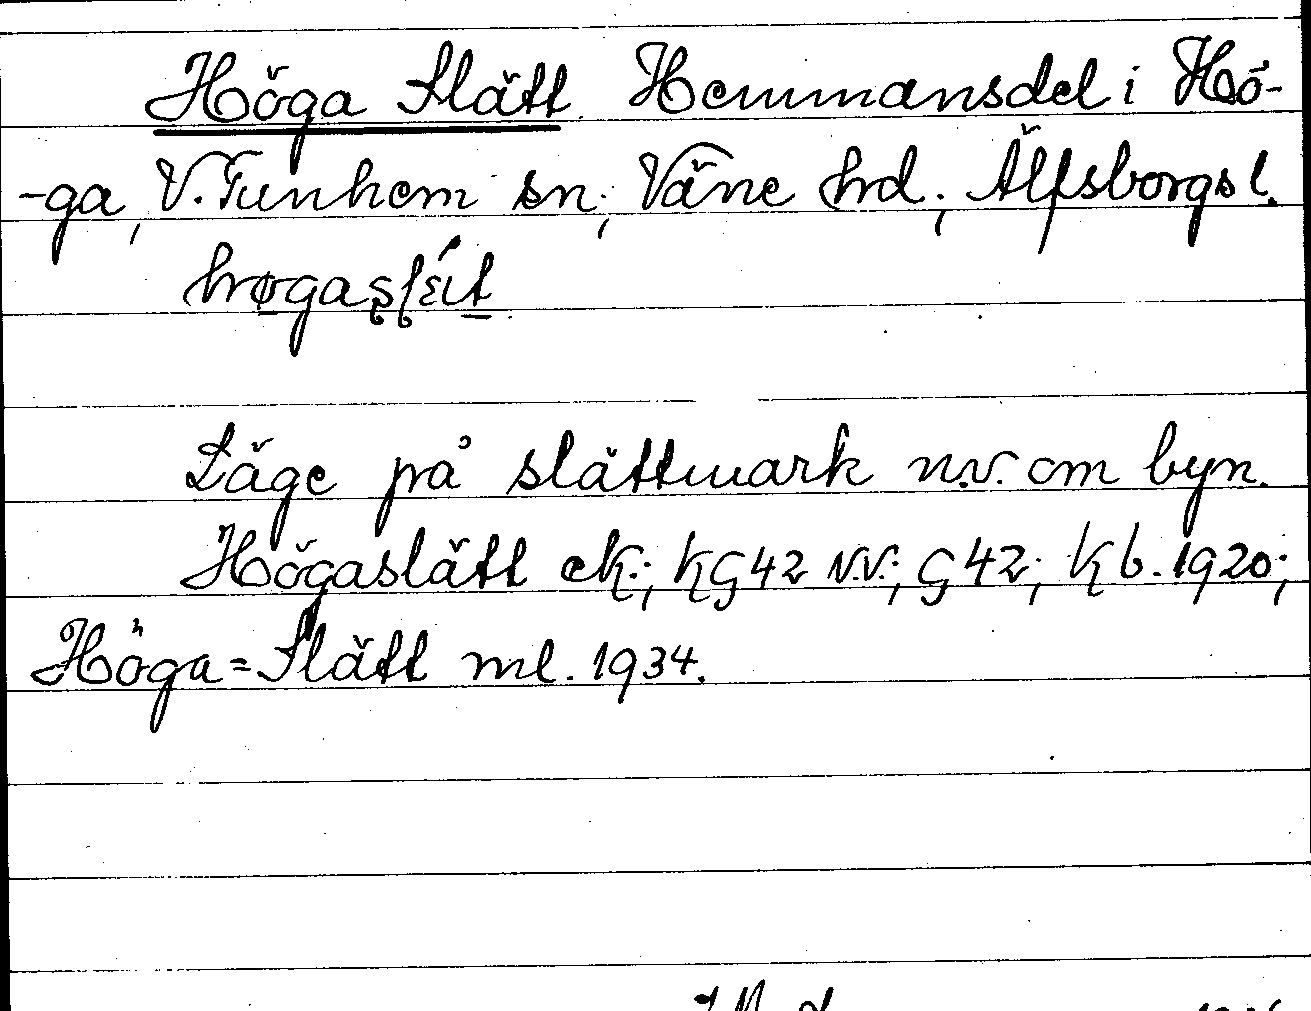 Höga Slätt Hemmansdel i Hö-
-ga, V. Tunhem sn; Väne hd; Älfsborgs l.
Läge på slättmark n.v. om byn.
Högaslätt ek.; KG42 N.V.; G42; Kb. 1920;
Höga=Slätt ml. 1934.